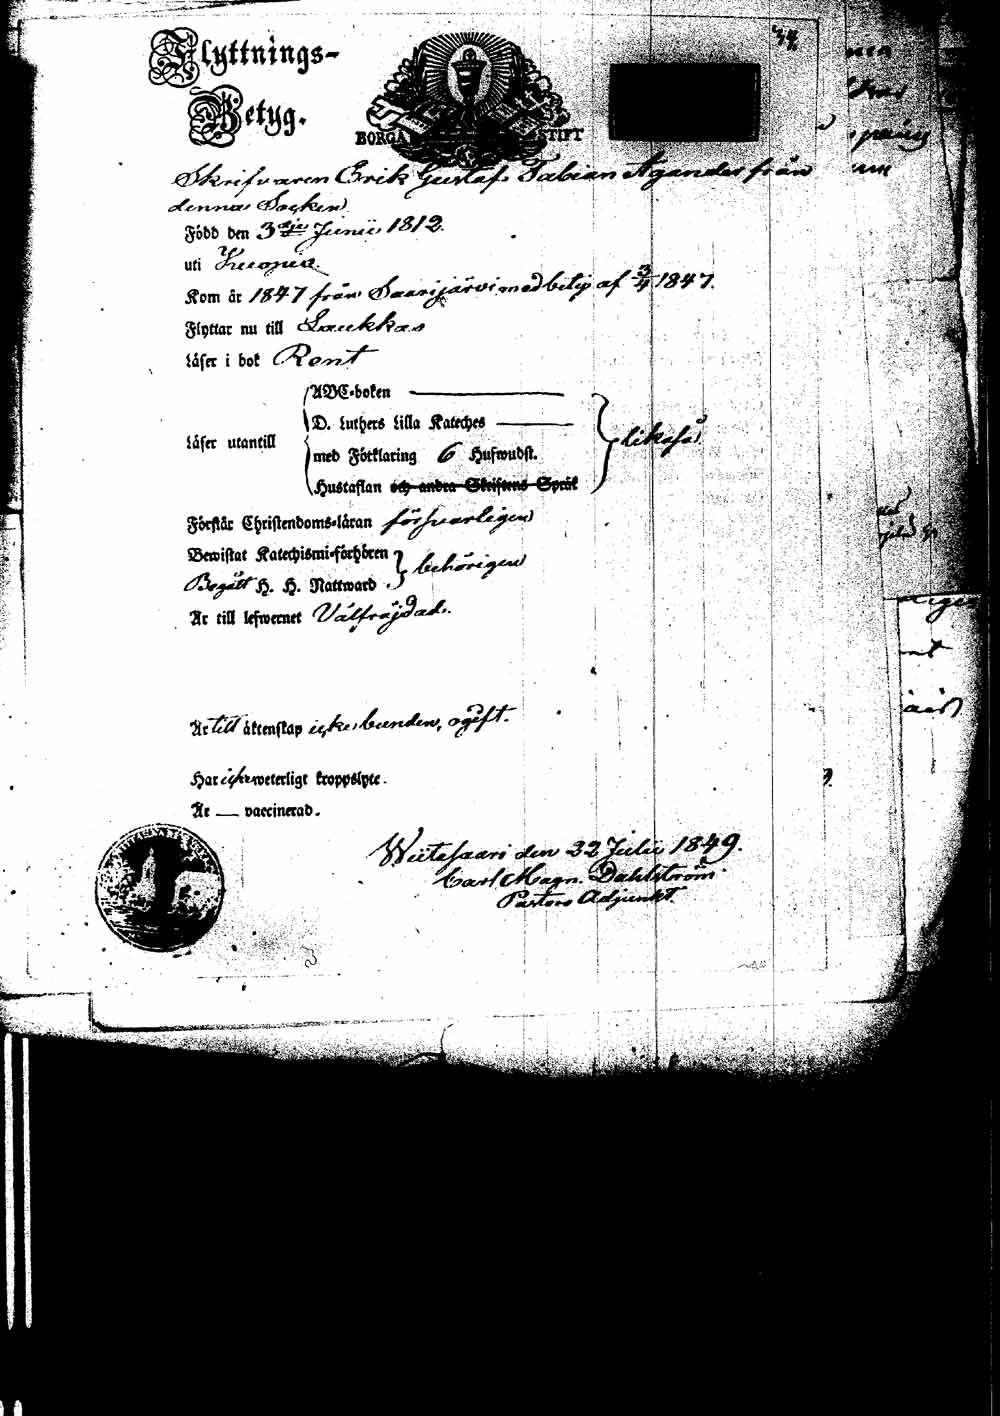 Flyttnings-
Betyg.
BORGÅ STIFT
Skrifvaren Erik Gustaf Fabian Agander från
denna Socken
Född den 3dje Junii 1812.
uti Kuopio
Kom år 1847 från Saarijärvi med betyg af 3/4 1847.
Flyttar nu till Laukkas
Läser i bok Rent
Läser utantill
ABC-boken
D. Luthers Lilla Kateches
med Förklaring 6 Hufwudst.
Hustaflan och andra Skriftens Språk
likaså
Förstår Christendoms-läran försvarligen
Bewistat Katechismi-förhören
Begått H. H. Nattward.
behörigen
Är till lefwernet Välfräjdad.
Är till äktenskap icke bunden, ogift.
Har icke weterligt kroppslyte.
Är — vaccinerad.
Wiitasaari den 22 Julii 1849.
Carl Magn. Dahlström
Pastors Adjunkt.